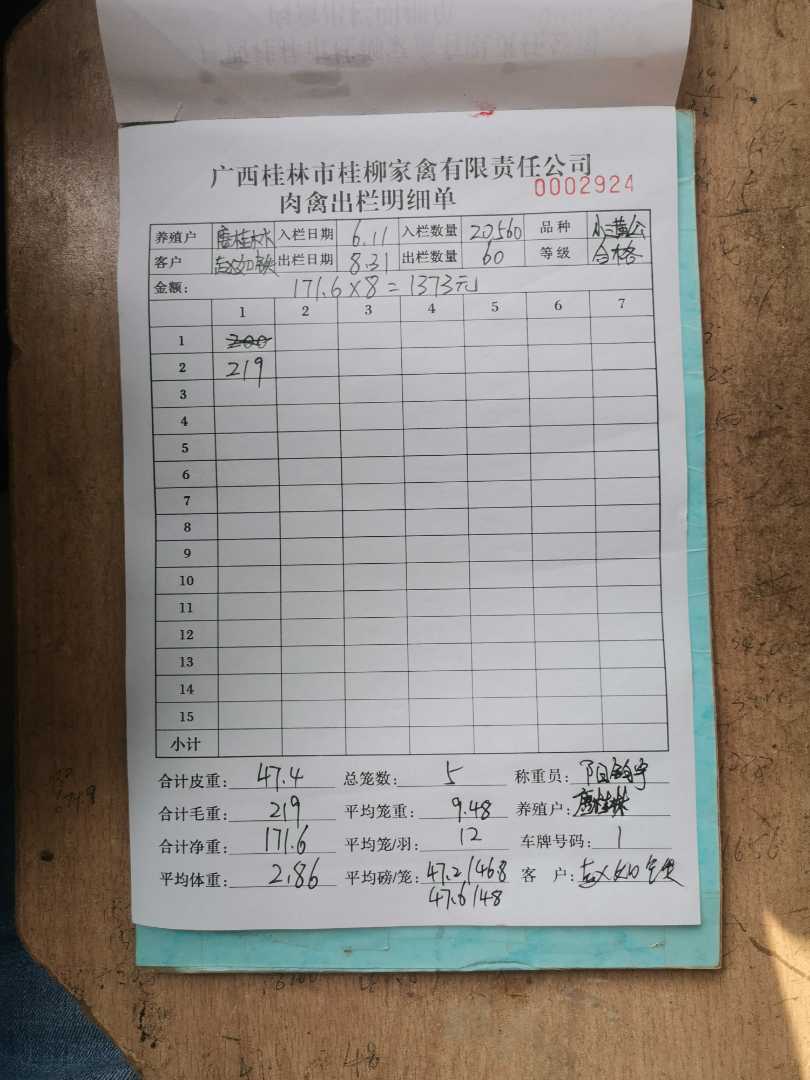 广西桂林市桂柳家禽有限责任公司
肉禽出栏明细单 0002924
养殖户 唐桂林 入栏日期 6.11 入栏数量 20560 品种 小三黄公
客户 赵如铁 出栏日期 8.31 出栏数量 60 等级 合格
金额： 171.6×8=1373元
1 2 3 4 5 6 7
1 200
2 219
3
4
5
6
7
8
9
10
11
12
13
14
15
小计
合计皮重： 47.4 总笼数： 5 称重员：
合计毛重： 219 平均笼重： 9.48 养殖户： 唐桂林
合计净重： 171.6 平均笼/羽： 12 车牌号码： 1
平均体重： 2.86 平均磅/笼： 47.2/46.8 客 户： 赵如铁
47.6/48